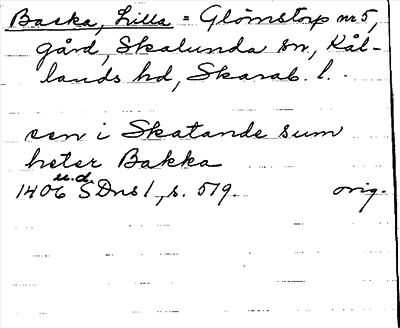 Backa, Lilla = Glömstorp nr 5,
gård, Skalunda sn, Kål-
lands hd, Skarab. l.
sen i Skatande sum
heter Bakka
1406 u.d. SDns 1, s. 519. orig.